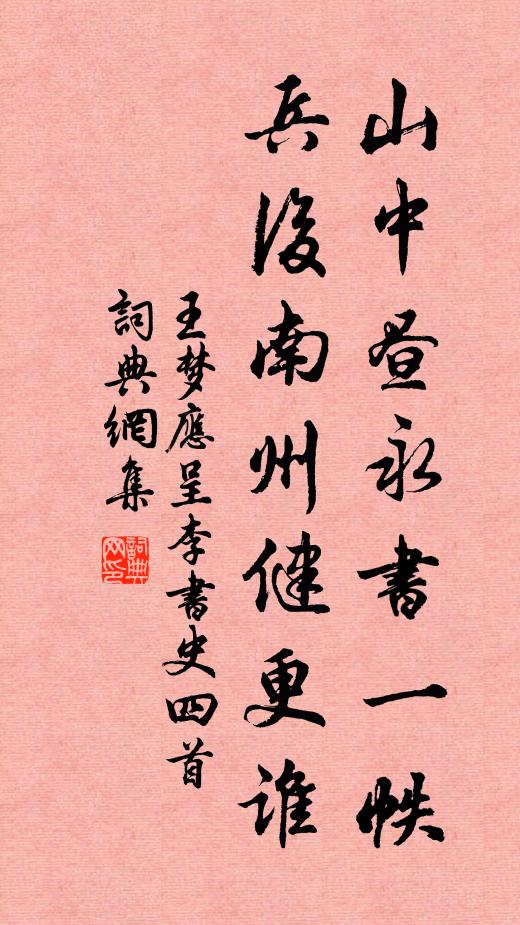 山中昼永書一帙
兵後南州健更誰
王梦應呈李書史四首
詞典網集
詞典網印